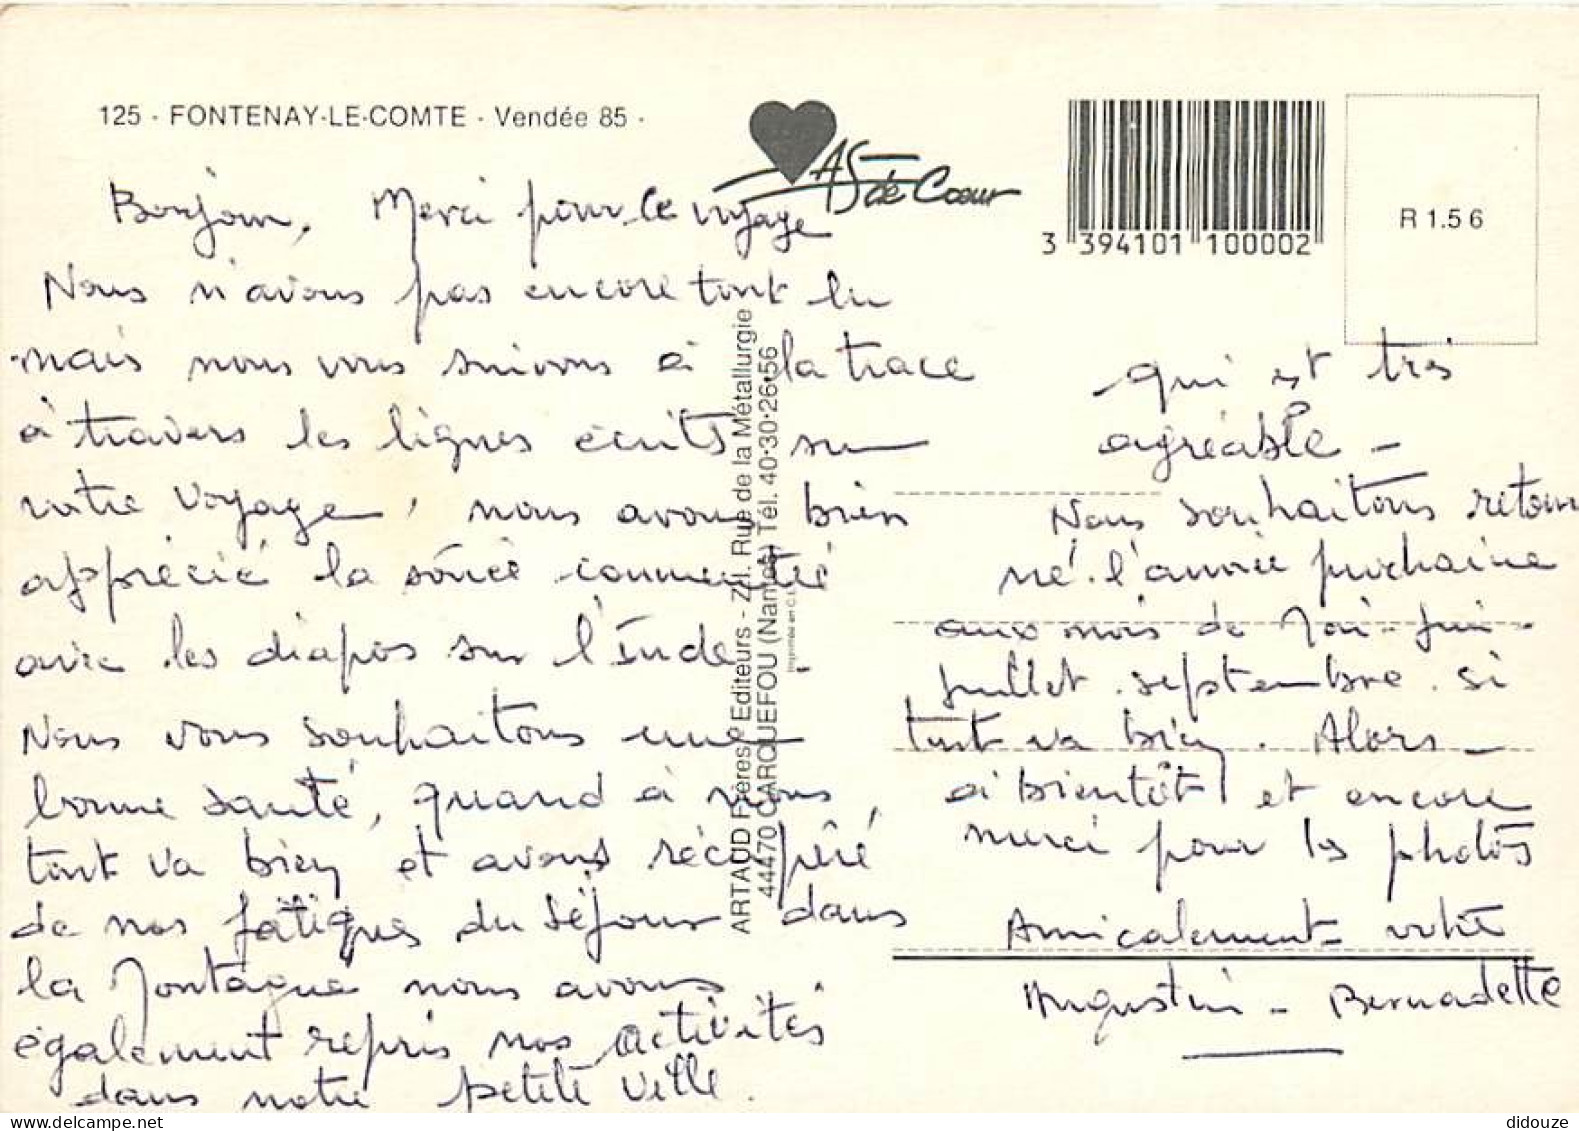 125 - FONTENAY-LE-COMTE - Vendée 85 -
AS de Cœur
3 394101 100002
R 1.56
Bonjour, Merci pour le voyage
Nous n'avons pas encore tout lu
mais nous vous suivons à la trace
à travers les lignes écrits sur
votre voyage, nous avons bien
apprécié la soirée commentée
avec les diapos sur l'Inde -
Nous vous souhaitons une
bonne santé, quand à nous,
tout va bien et avons récupéré
de nos fatigues du séjour dans
la Montagne nous avons
également repris nos activités
dans notre petite ville.
ARTAUD Frères, Editeurs - Z.I. Rue de la Métallurgie
44470 CARQUEFOU (Nantes) Tél. 40-30-26-56
Imprimé en C.E.
qui est très
agréable -
Nous souhaitons retour
né l'année prochaine
aux mois de Mai - Juin -
Juillet. septembre. si
tout va bien. Alors -
à bientôt et encore
merci pour les photos
Amicalement votre
Augustin - Bernadette
didouze
delcampe.net